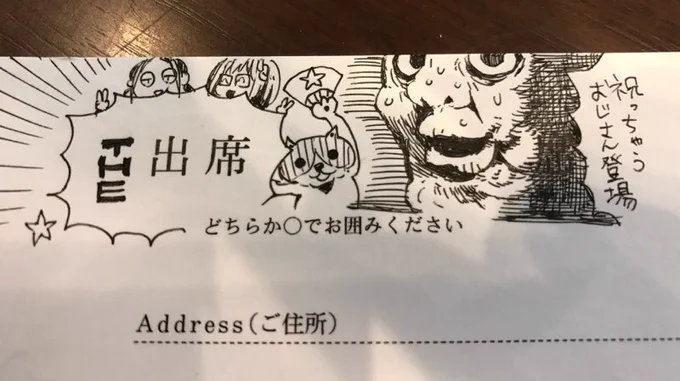 THE 出席
祝っちゃう
おじさん登場
どちらか○でお囲みください
Address(ご住所)